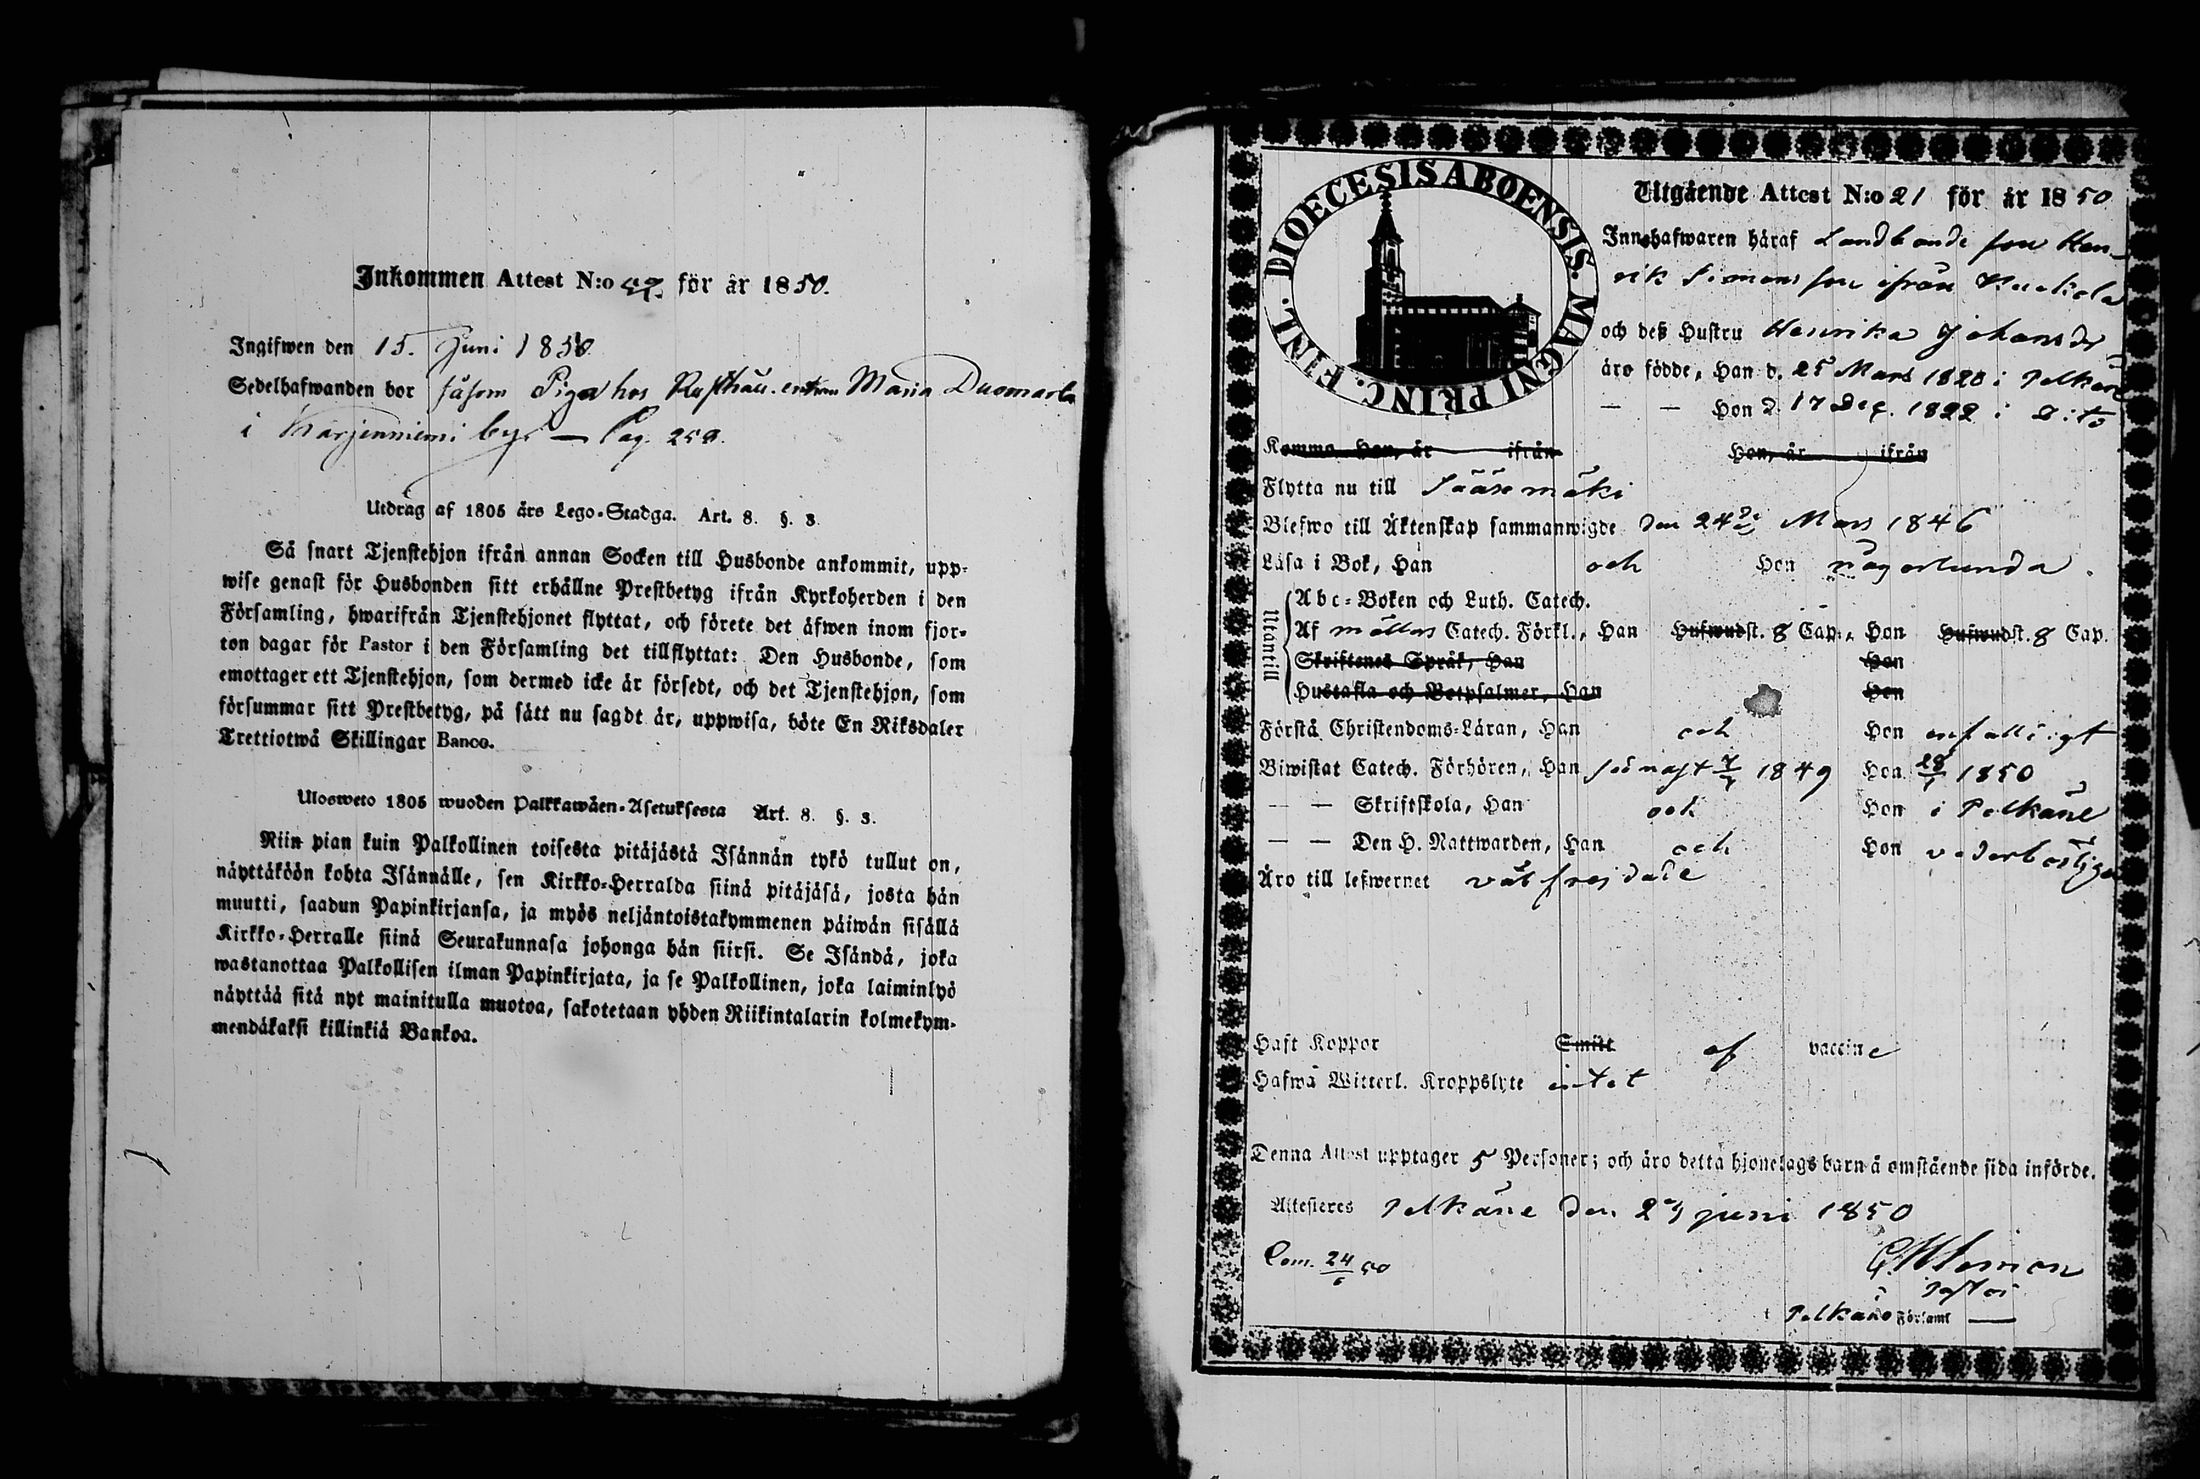 Inkommen Attest N:o 59. för år 1850.
Ingifwen den 15. Juni 1850
Sedelhafwanden bor såsom Piga hos Rusthåll. enkan Maria Duomarla
i Karjenniemi by. — Pag. 258.
Utdrag af 1805 års Lego-Stadga. Art. 8. §. 3.
Så snart Tjenstehjon ifrån annan Socken till Husbonde ankommit, upp-
wise genast för Husbonden sitt erhållne Prestbetyg ifrån Kyrkoherden i den
Församling, hwarifrån Tjenstehjonet flyttat, och förete det äfwen inom fjor-
ton dagar för Pastor i den Församling det tillflyttat: Den Husbonde, som
emottager ett Tjenstehjon, som dermed icke är försedt, och det Tjenstehjon, som
försummar sitt Prestbetyg, på sätt nu sagdt är, uppwisa, böte En Riksdaler
Trettiotwå Skillingar Banco.
Ulosweto 1805 wuoden Palkkawäen-Asetuksesta Art. 8. §. 3.
Niin pian kuin Palkollinen toisesta pitäjästä Isännän tykö tullut on,
näyttäköön kohta Isännälle, sen Kirkko-Herralda siinä pitäjäsä, josta hän
muutti, saadun Papinkirjansa, ja myös neljäntoistakymmenen päiwän sisällä
Kirkko-Herralle siinä Seurakunnasa johonga hän siirsi. Se Isändä, joka
wastanottaa Palkollisen ilman Papinkirjata, ja se Palkollinen, joka laiminlyö
näyttää sitä nyt mainitulla muotoa, sakotetaan yhden Riikintalarin kolmekym-
mendäkaksi killinkiä Bankoa.
DIOECESIS ABOENSIS. MAGNI PRINC. FINL.
Utgående Attest N:o 21 för år 1850
Innehafwaren häraf Landbonde son Hen-
rik Simons son ifrån
och deß Hustru Henrika Johansdr
äro födde, Han d. 25 Mars 1820 i Pelkäne
— — Hon d. 17 Dec. 1822 i Dito
Komma Han, år ifrån Hon, år ifrån
Flytta nu till Sääksmäki
Blefwo till Äktenskap sammanwigde den 24de Mars 1846
Läsa i Bok, Han och Hon någorlunda.
Utantill
Abc-Boken och Luth. Catech.
Af Catech. Förkl., Han Hufwudst. 8 Cap., Hon Hufwudst. 8 Cap.
Skriftenes Språk, Han Hon
Hustafla och Botpsalmer, Han Hon
Förstå Christendoms-Läran, Han och Hon enfalligt
Biwistat Catech. Förhören, Han senast 1849 Hon 1850
— — Skriftskola, Han och Hon i Pelkäne
— — Den H. Nattwarden, Han och Hon vederbörligen
Äro till lefwernet välfrejdade
Haft Koppor Smitt af vaccine
Hafwa Witterl. Kroppslyte intet
Denna Attest upptager 5 Personer; och äro detta hjonelags barn å omstående sida införde.
Attesteres Pelkäne den 23 juni 1850
Com. 24/6 50
Pastor
i Pelkäne Församl —